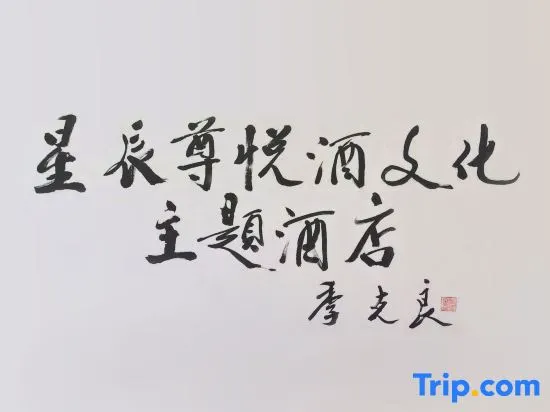 星辰尊悦酒文化
主题酒店
季克良
Trip.com